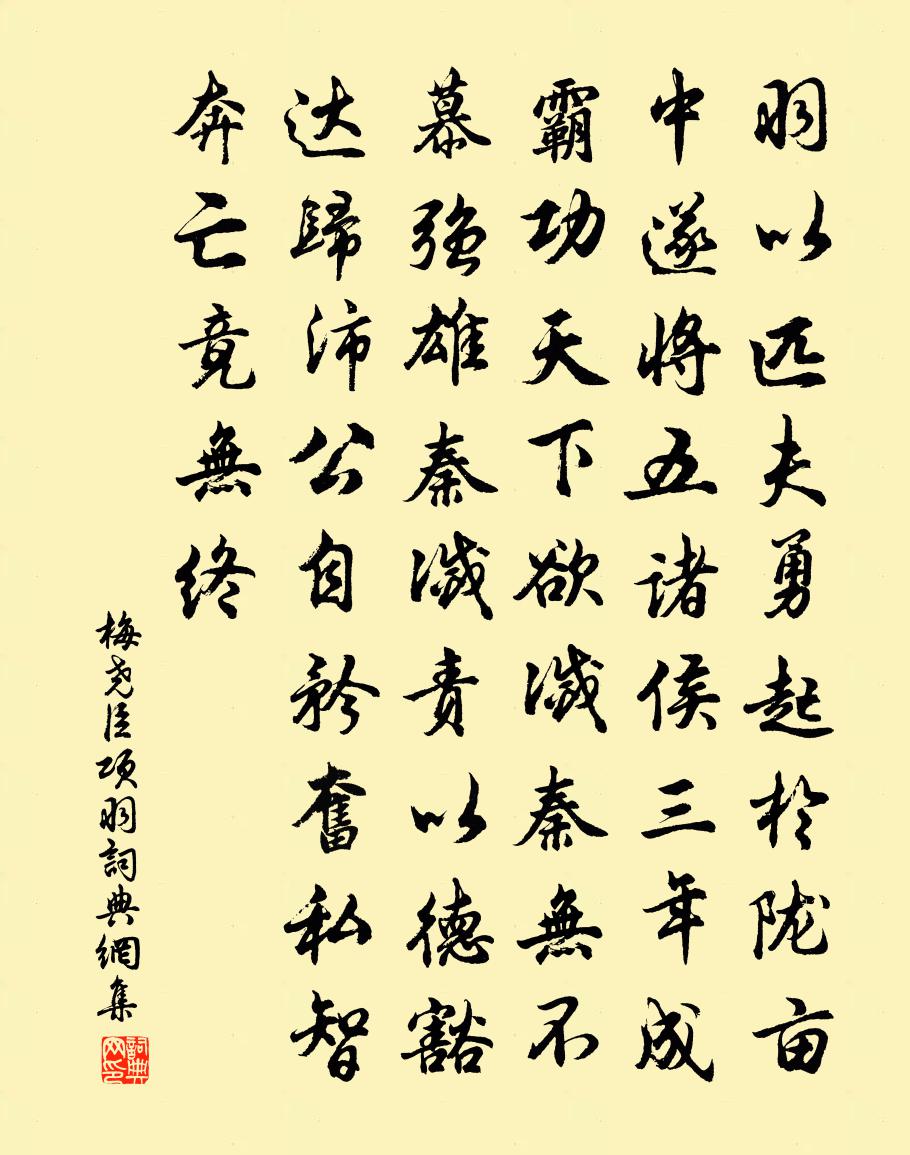 羽以匹夫勇起於陇亩
中遂将五诸侯三年成
霸功天下欲灭秦無不
慕强雄秦灭责以德豁
达歸沛公自矜奮私智
奔亡竟無终
梅尧臣项羽詞典網集
詞典网印